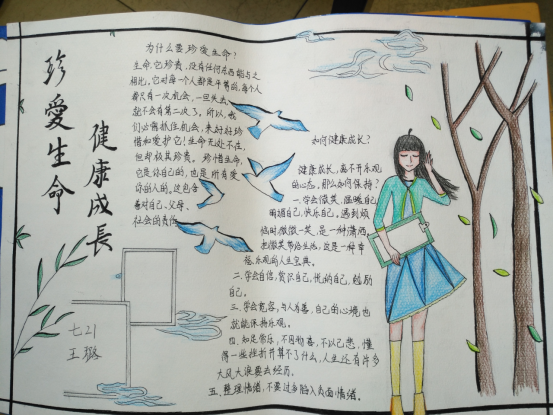 珍愛生命
健康成長
为什么要珍爱生命?
生命,它珍贵,没有任何东西能与之
相比。它对每一个人都是平等的,每个人
都只有一次机会,一旦失去,
就不会有第二次了。所以,我
们必需抓住机会,来好好珍
惜和爱护它!生命无处不在,
但却极其珍贵。珍惜生命,
它是你自己的,也是所有爱
你的人的。这包含
着对自己、父母、
社会的责任
如何健康成长?
健康成长,离不开乐观
的心态。那么如何保持?
一.学会微笑,温暖自己
快乐自己。遇到烦
恼时微微一笑,是一种潇洒。
把微笑带给生活,这是一种幸
福、乐观的人生宝典。
二.学会自信,赏识自己,忧的自己,勉励
自己。
三.学会宽容,与人为善,自己的心境也
就能保持乐观。
四.知足常乐,不因物喜,不以己悲,懂
得一些挫折并算不了什么,人生还有许多
大风大浪要去经历。
五.整理情绪,不要过多陷入负面情绪。
七21
王璐